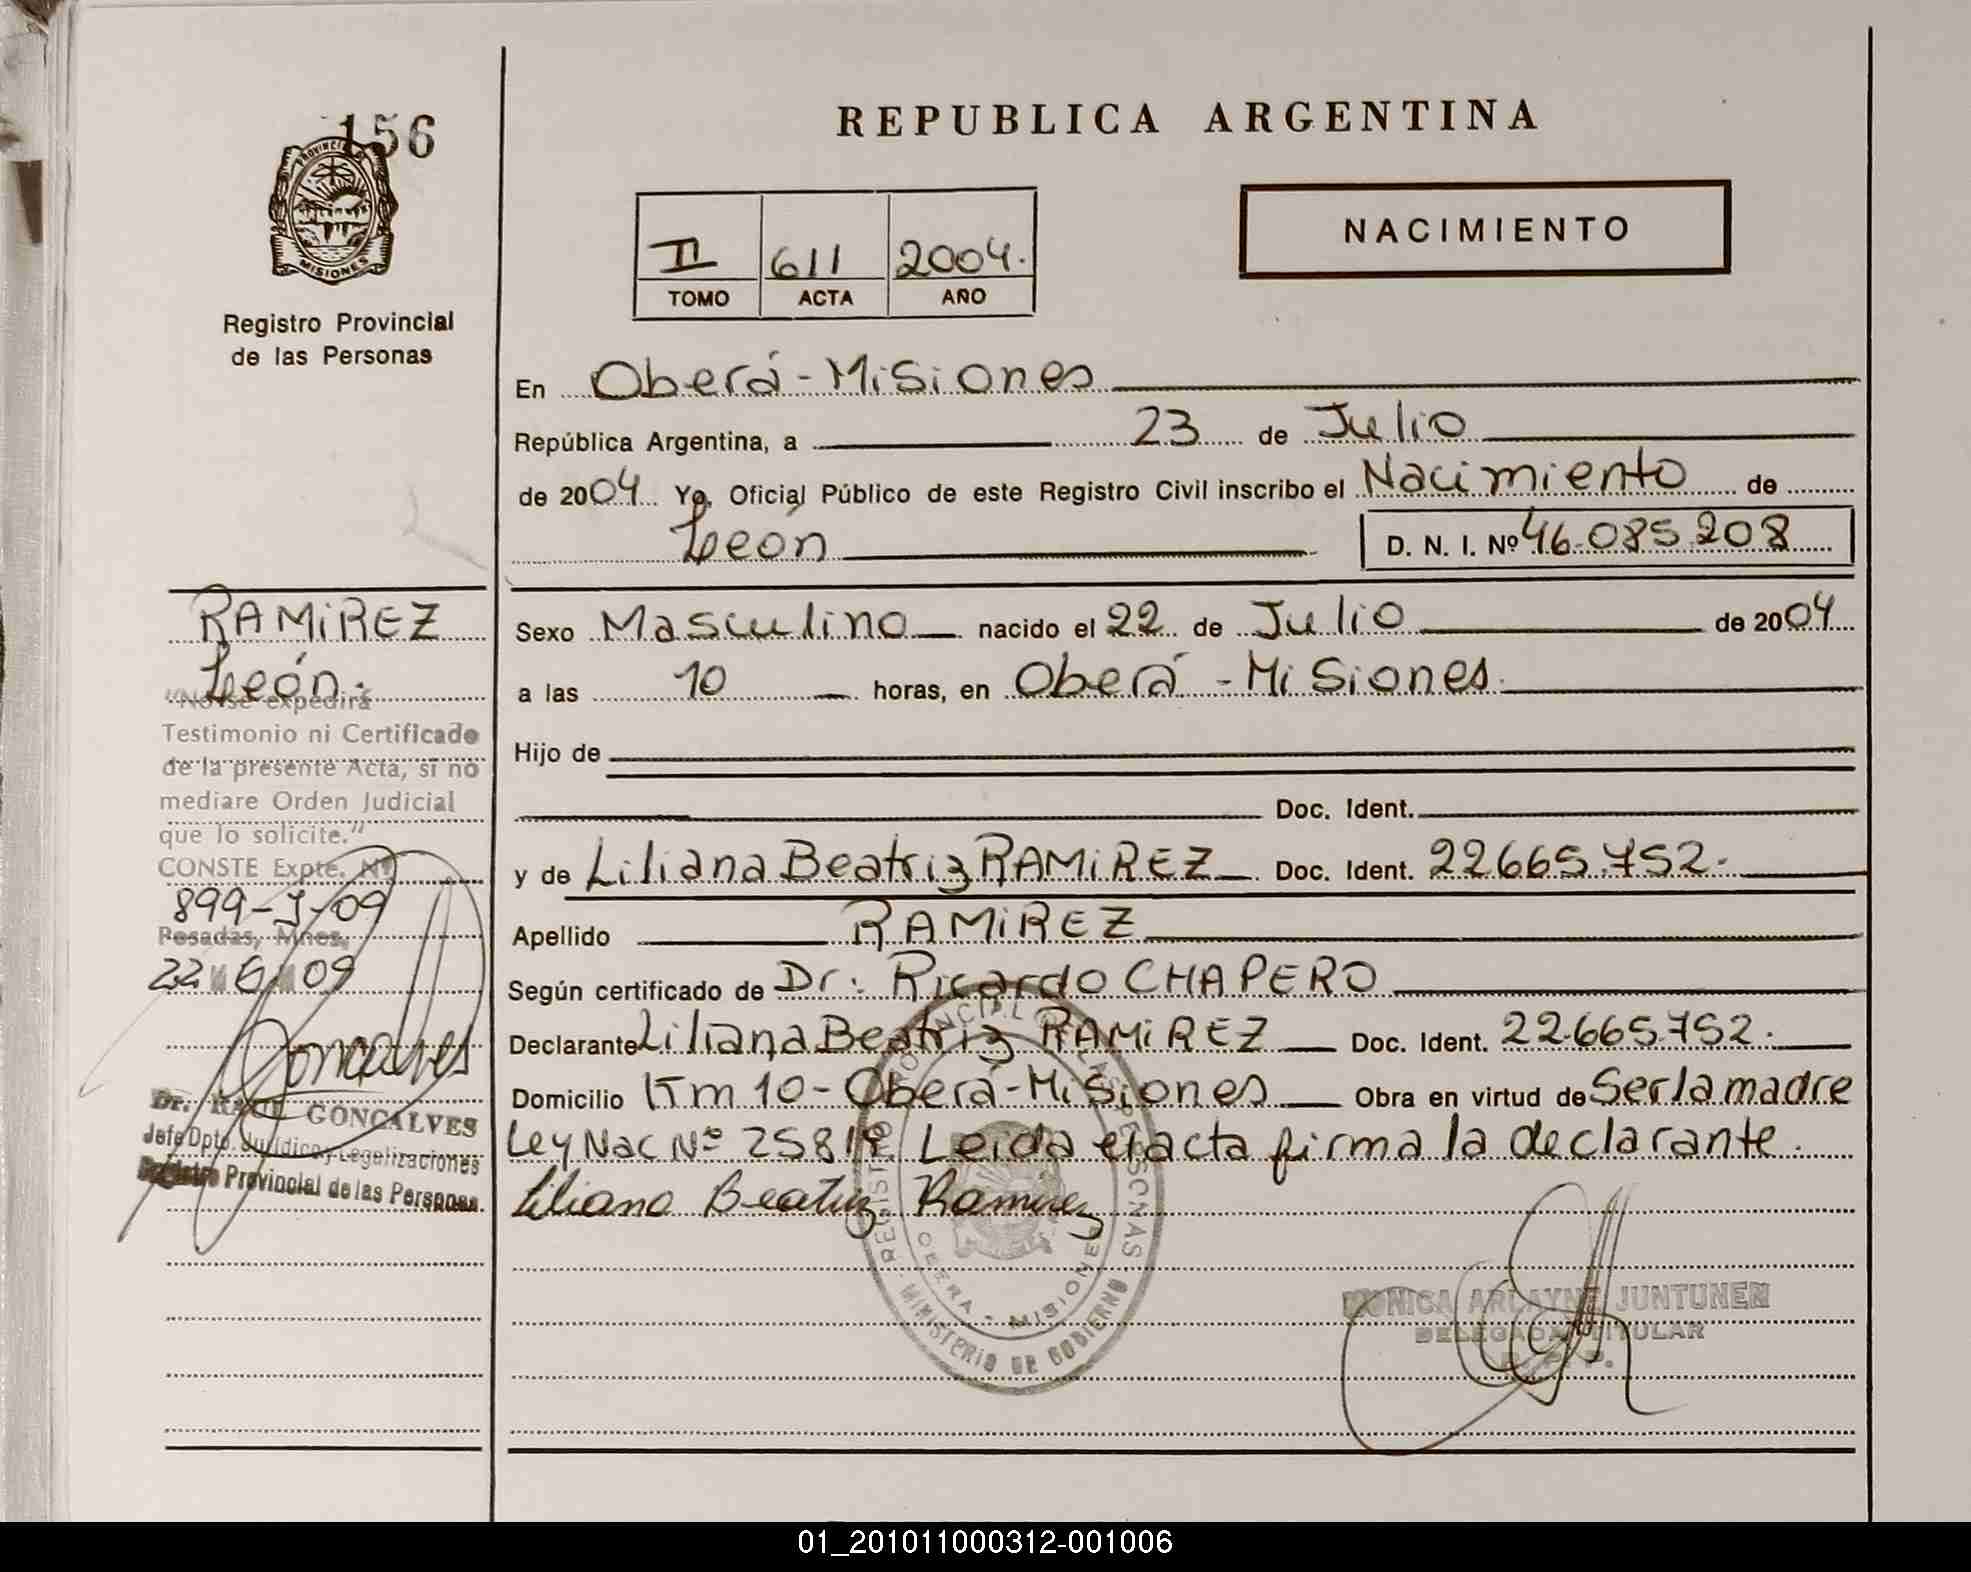 156
PROVINCIA
MISIONES
Registro Provincial
de las Personas
REPUBLICA ARGENTINA
II 611 2004.
TOMO ACTA AÑO
NACIMIENTO
En Oberá - Misiones
República Argentina, a 23 de Julio
de 2004 Yo, Oficial Público de este Registro Civil inscribo el Nacimiento de
León
D. N. I. Nº 46.085.208
Sexo Masculino nacido el 22 de Julio de 2004
a las 10 horas, en Oberá - Misiones.
Hijo de
Doc. Ident.
y de Liliana Beatriz RAMIREZ Doc. Ident. 22.665.752.
Apellido RAMIREZ
Según certificado de Dr. Ricardo CHAPERO
Declarante Liliana Beatriz RAMIREZ Doc. Ident. 22.665.752.
Domicilio Km 10 - Oberá - Misiones Obra en virtud de Ser la madre
Ley Nac Nº 2581 Leida el acta firma la declarante.
Liliana Beatriz Ramirez
MINISTERIO DE GOBIERNO
OBERA - MISIONES
MONICA ARLAYNE JUNTUNEN
DELEGADA TITULAR
RAMIREZ
León.
"No se expedirá
Testimonio ni Certificado
de la presente Acta, si no
mediare Orden Judicial
que lo solicite."
CONSTE Expte. Nº
899-J-09
Posadas, Mnes,
22 6 09
Goncalves
Dr. RAUL GONCALVES
Jefe Dpto. Jurídico y Legalizaciones
Registro Provincial de las Personas
01_201011000312-001006